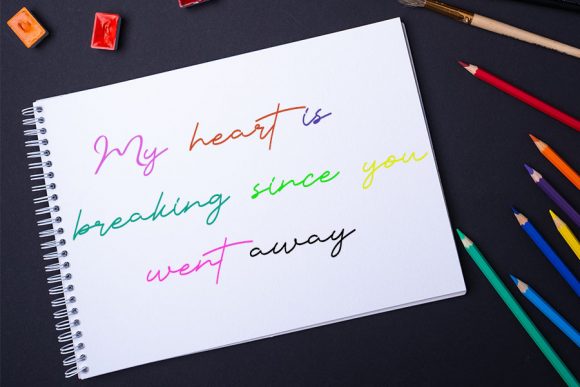 My heart is
breaking since you
went away